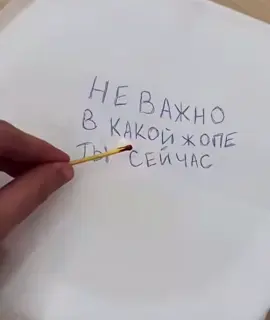 НЕ ВАЖНО
В КАКОЙ ЖОПЕ
ТЫ СЕЙЧАС